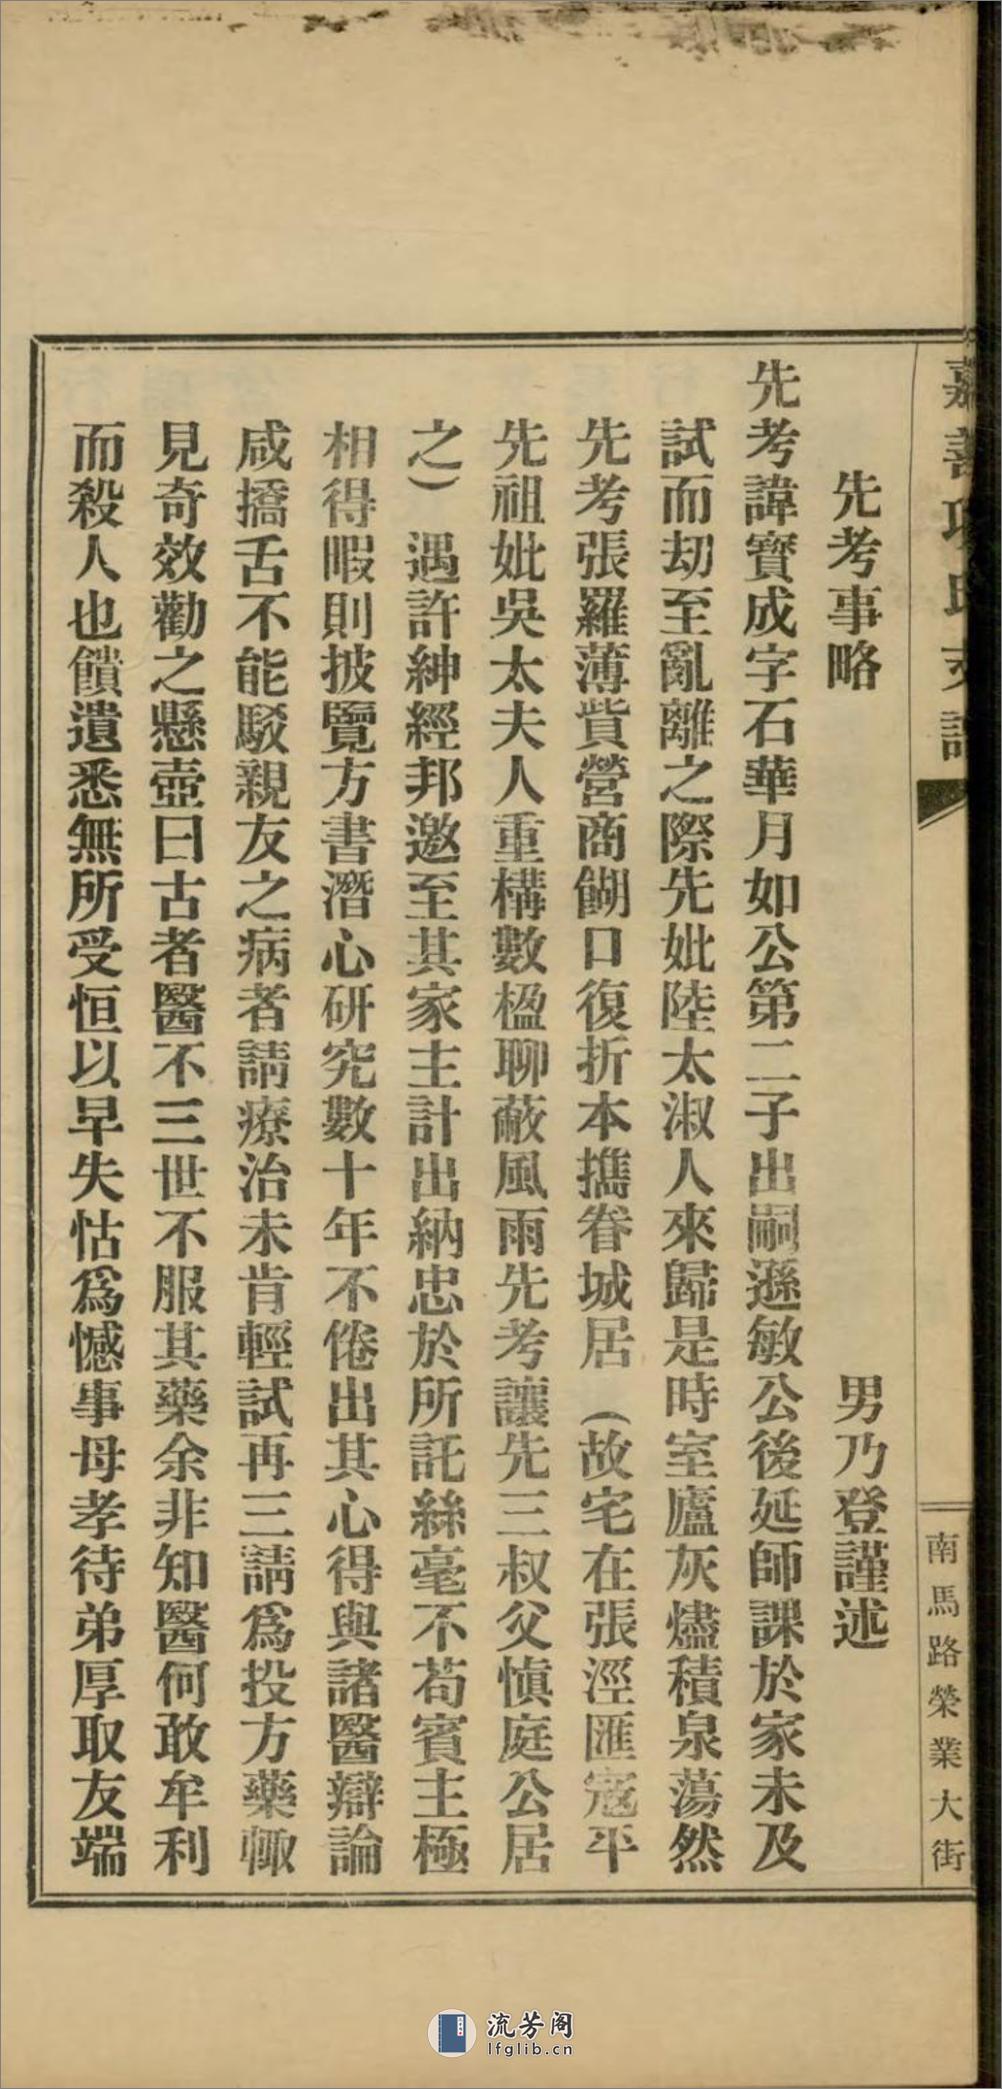 嘉善項氏支譜
南馬路榮業大街
先考事略
男乃登謹述
先考諱寶成字石華月如公第二子出嗣遜敏公後延師課於家未及
試而劫至亂離之際先妣陸太淑人來歸是時室廬灰燼積泉蕩然
先考張羅薄貲營商餬口復折本攜眷城居（故宅在張涇匯寇平
先祖妣吳太夫人重構數楹聊蔽風雨先考讓先三叔父慎庭公居
之）遇許紳經邦邀至其家主計出納忠於所託絲毫不苟賓主極
相得暇則披覽方書潛心研究數十年不倦出其心得與諸醫辯論
咸撟舌不能駁親友之病者請療治未肯輕試再三請爲投方藥輙
見奇效勸之懸壺曰古者醫不三世不服其藥余非知醫何敢牟利
而殺人也饋遺悉無所受恒以早失怙爲憾事母孝待弟厚取友端
流芳阁
lfglib.cn